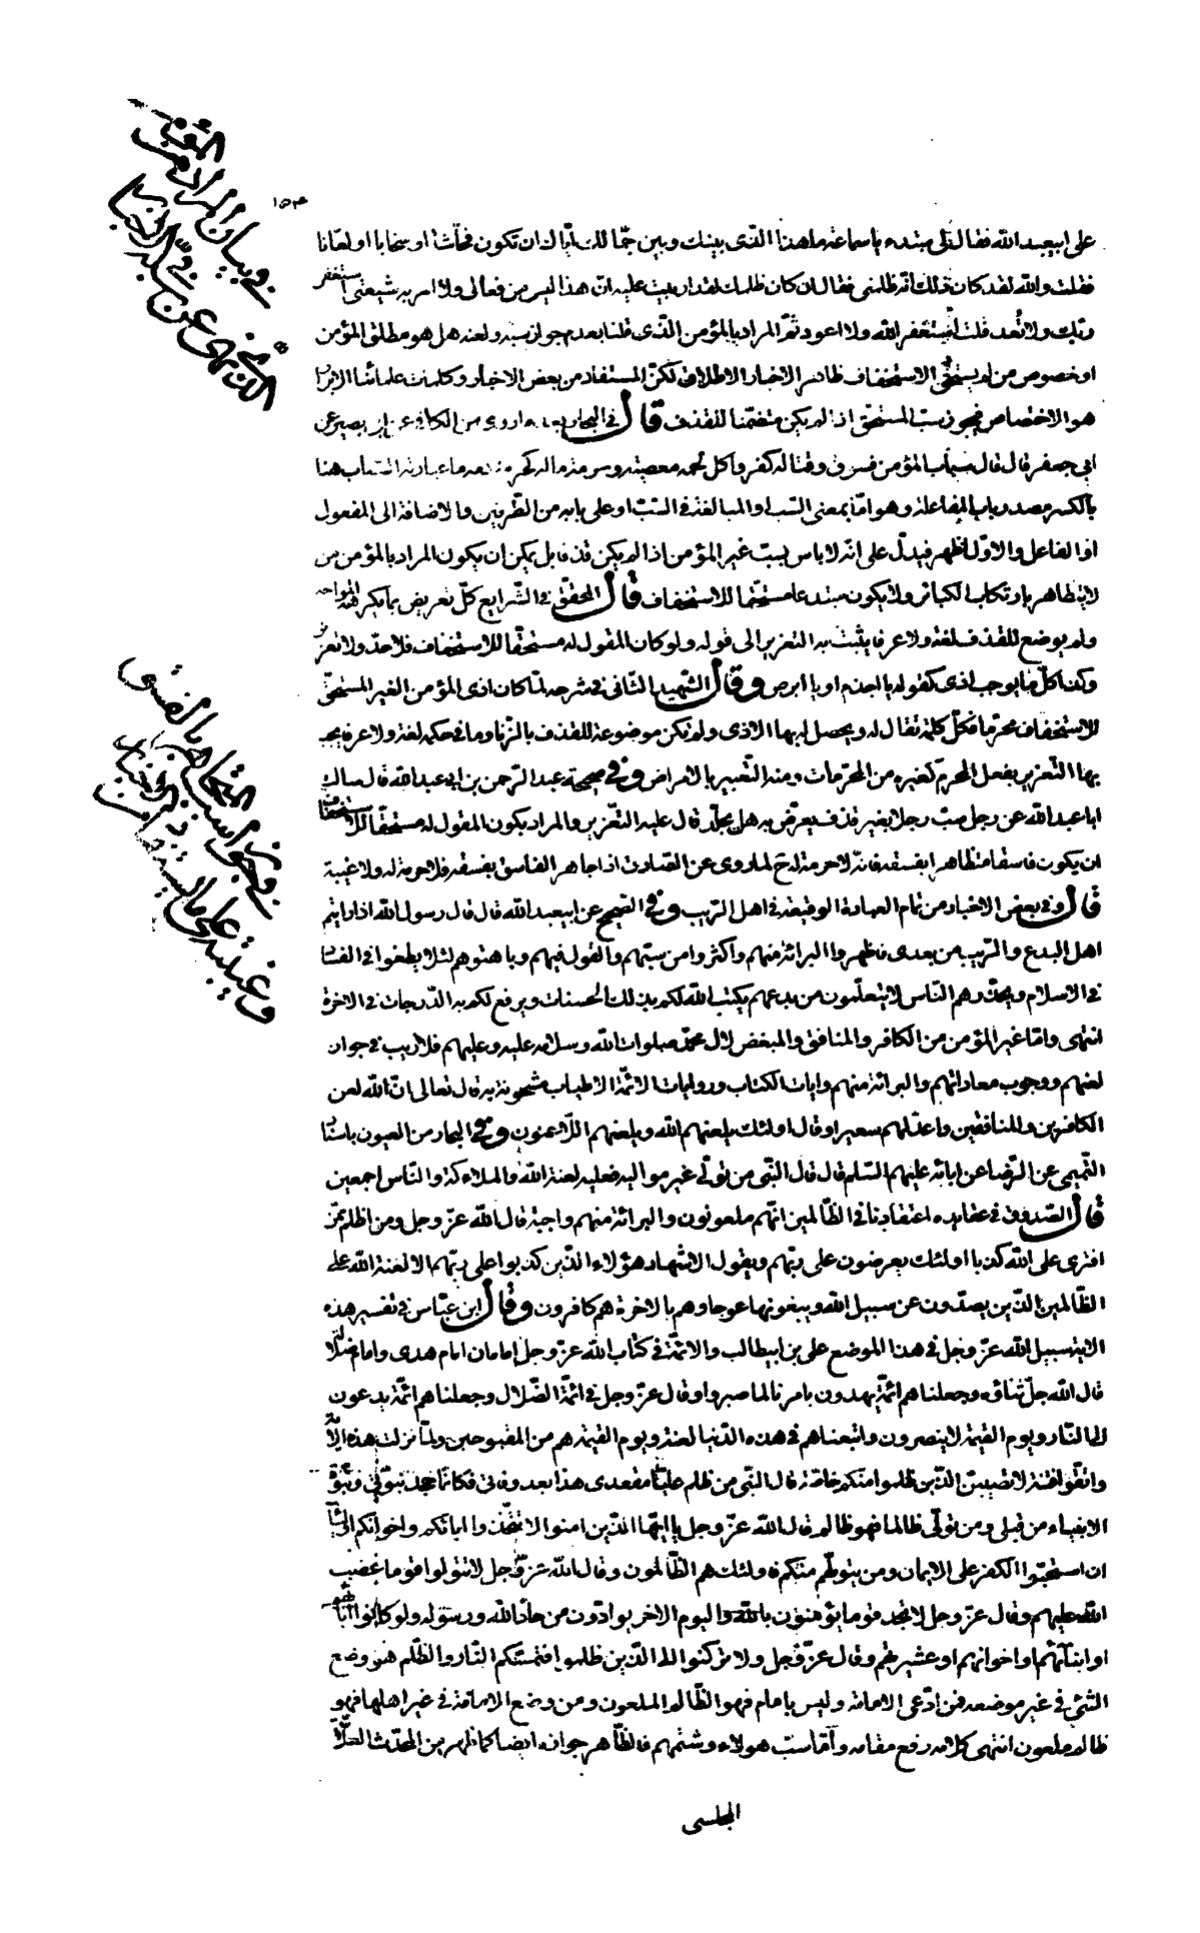 على ابيعبد الله فقال لى مبتدء يا سماعة ما هذا الذى بينك وبين جمالك اياك ان تكون فحاشا او سخابا او لعانا
فقلت والله لقد كان ذلك انه ظلمنى فقال ان كان ظلمك لقد اربيت عليه ان هذا ليس من فعالى ولا امر به شيعتى استغفر
ربك ولا تعد قلت استغفر الله ولا اعود ثم المراد بالمؤمن الذى قلنا بعدم جواز سبه ولعنه هل هو مطلق المؤمن
او خصوص من لم يستحق الاستخفاف ظاهر الاخبار الاطلاق لكن المستفاد من بعض الاخبار وكلمات علمائنا الابرار
هو الاختصاص فيجوز سب المستحق اذا لم يكن متضمنا للقذف قال فى البحار بعد ما روى من الكافى عن ابى بصير عن
ابى جعفر قال قال سباب المؤمن فسوق وقتاله كفر واكل لحمه معصية وحرمة ماله كحرمة دمه ما عبارته السباب هنا
بالكسر مصدر باب المفاعلة وهو اما بمعنى السب او المبالغة فى السب او على بابه من الطرفين والاضافة الى المفعول
او الفاعل والاول اظهر فيدل على انه لا باس بسب غير المؤمن اذا لم يكن قذفا بل يمكن ان يكون المراد بالمؤمن من
لا يتظاهر بارتكاب الكبائر ولا يكون مبتدعا مستحقا للاستخفاف قال المحقق فى الشرايع كل تعريض بما يكرهه المواجه
ولم يوضع للقذف لغة ولا عرفا يثبت به التعزير الى قوله ولو كان المقول له مستحقا للاستخفاف فلا حد ولا تعزير
وكذا كل ما يوجب اذى كقوله يا اجذم او يا ابرص وقال الشهيد الثانى فى شرحه لما كان اذى المؤمن الغير المستحق
للاستخفاف محرما فكل كلمة تقال له ويحصل له بها الاذى ولم تكن موضوعة للقذف بالزنا وما فى حكمه لغة ولا عرفا يجب
بها التعزير بفعل المحرم كغيره من المحرمات ومنه التعيير بالامراض وفى صحيحة عبد الرحمن بن ابى عبد الله قال سالت
ابا عبد الله عن رجل سب رجلا بغير قذف يعرض به هل يجلد قال عليه التعزير والمراد بكون المقول له مستحقا للاستخفاف
ان يكون فاسقا متظاهرا بفسقه فانه لا حرمة له ح لما روى عن الصادق اذا جاهر الفاسق بفسقه فلا حرمة له ولا غيبة
قال وفى بعض الاخبار من تمام العبادة الوقيعة فى اهل الريب وفى الصحيح عن ابيعبد الله قال قال رسول الله اذا رايتم
اهل البدع والريب من بعدى فاظهروا البرائة منهم واكثروا من سبهم والقول فيهم وباهتوهم لئلا يطغوا فى الفساد
فى الاسلام ويحذرهم الناس لا يتعلمون من بدعهم يكتب الله لكم بذلك الحسنات ويرفع لكم به الدرجات فى الاخرة
انتهى واما غير المؤمن من الكافر والمنافق والمبغض لال محمد صلوات الله وسلامه عليه وعليهم فلا ريب فى جواز
لعنهم ووجوب معاداتهم والبرائة منهم وايات الكتاب وروايات الائمة الاطياب مشحونة به قال تعالى ان الله لعن
الكافرين والمنافقين واعد لهم سعيرا وقال اولئك يلعنهم الله ويلعنهم اللاعنون وفى البحار من العيون باسناد
التميمى عن الرضا عن ابائه عليهم السلم قال قال النبى من تولى غير مواليه فعليه لعنة الله والملائكة والناس اجمعين
قال الصدوق فى عقايده اعتقادنا فى الظالمين انهم ملعونون والبرائة منهم واجبة قال الله عز وجل ومن اظلم ممن
افترى على الله كذبا اولئك يعرضون على ربهم ويقول الاشهاد هؤلاء الذين كذبوا على ربهم الا لعنة الله على
الظالمين الذين يصدون عن سبيل الله ويبغونها عوجا وهم بالاخرة هم كافرون وقال ابن عباس فى تفسير هذه
الاية سبيل الله عز وجل فى هذا الموضع على بن ابيطالب والائمة فى كتاب الله عز وجل امامان امام هدى وامام ضلالة
قال الله جل ثناؤه وجعلناهم ائمة يهدون بامرنا لما صبروا وقال عز وجل فى ائمة الضلال وجعلناهم ائمة يدعون
الى النار ويوم القيمة لا ينصرون واتبعناهم فى هذه الدنيا لعنة ويوم القيمة هم من المقبوحين ولما نزلت هذه الاية
واتقوا فتنة لا تصيبن الذين ظلموا منكم خاصة قال النبى من ظلم عليا مقعدى هذا بعد وفاتى فكانما جحد نبوتى ونبوة
الانبياء من قبلى ومن تولى ظالما فهو ظالم قال الله عز وجل يا ايها الذين امنوا لا تتخذوا اباءكم واخوانكم اولياء
ان استحبوا الكفر على الايمان ومن يتولهم منكم فاولئك هم الظالمون وقال الله عز وجل لا تتولوا قوما غضب
الله عليهم وقال عز وجل لا تجد قوما يؤمنون بالله واليوم الاخر يوادون من حاد الله ورسوله ولو كانوا آباءهم
او ابناءهم او اخوانهم او عشيرتهم وقال عز وجل ولا تركنوا الى الذين ظلموا فتمسكم النار والظلم هو وضع
الشئ فى غير موضعه فمن ادعى الامامة وليس بامام فهو الظالم الملعون ومن وضع الامامة فى غير اهلها فهو
ظالم ملعون انتهى كلامه رفع مقامه واما سب هولاء وشتمهم فالظاهر جوازه ايضا كما ظهر من المحدث العلامة
المجلسى
فى بيان المراد من المؤمن
الذى نهى عن سبه فى الاخبار
فى جواز سب المتجاهر بالفسق
وغيبته على ما يستفاد من الاخبار